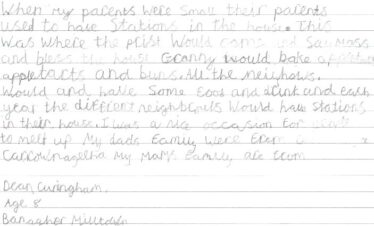 When my parents were small their parents
used to have Stations in the house. This
was where the prist would come and Say Mass
and bless the house Granny would bake
apple tarts and buns. All the neighours.
would and have Some food and drink and each
year the diffrent neighbours Would have stations
in their house. I was a nice occasion for
to meet up My dads family were from
My Mam's family are from
Dean Cuningham.
Age 8
Banagher Milltown